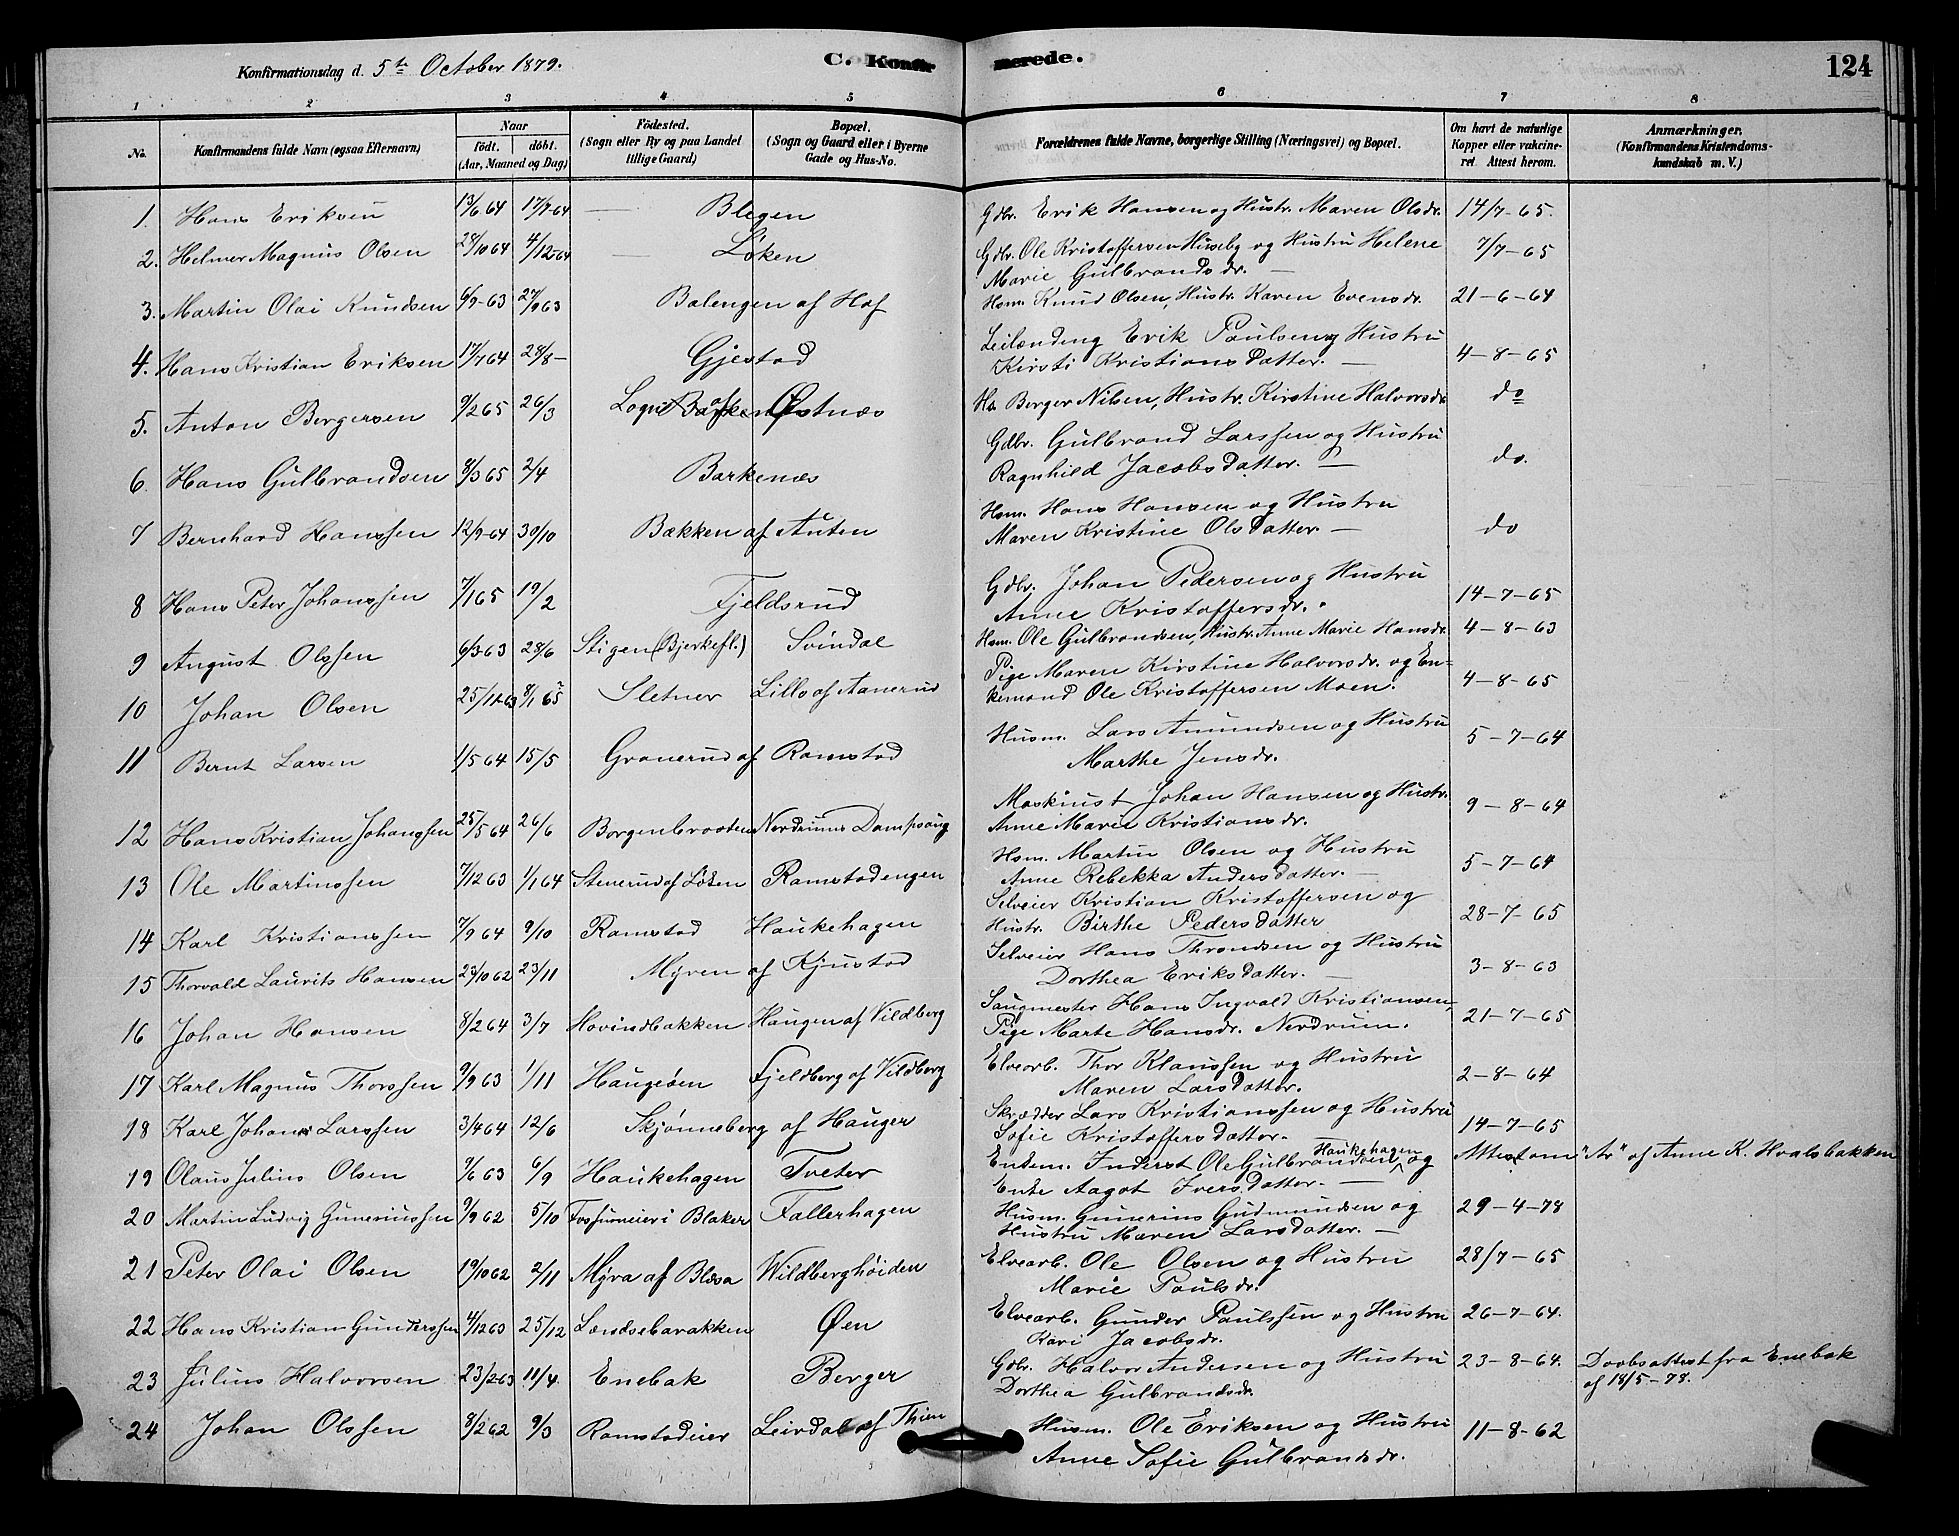 Konfirmationsdag d. 5te October 1879.
C. Konfirmerede.
124
1 2 3 4 5 6 7 8
No.
Konfirmandens fulde Navn (ogsaa Efternavn)
Naar
födt. döbt.
(Aar, Maaned og Dag)
Födested.
(Sogn eller By og paa Landet
tillige Gaard)
Bopæl.
(Sogn og Gaard eller i Byerne
Gade og Hus-No.
Forældrenes fulde Navne, borgerlige Stilling (Næringsvei) og Bopæl.
Om havt de naturlige
Kopper eller vakcine-
ret. Attest herom.
Anmærkninger.
(Konfirmandens Kristendoms-
kundskab m. V.)
1. Hans Eriksen 13/6 64 17/7-64 Blegen Gdbr. Erik Hansen og Hustr. Maren Olsdr. 14/7-65.
2. Helmer Magnus Olsen 28/10 64 4/12-64 Löken Gdbr. Ole Kristoffersen Huseby og Hustru Helene 7/7-65
Marie Gulbrandsdr. —
3. Martin Olai Knudsen 6/9-63 27/9 63 Balengen af Hof Hsm. Knud Olsen, Hustr. Karen Evensdr. 21-6-64
4. Hans Kristian Eriksen 17/7 64 28/8- Gjestad Leilænding Erik Paulsen og Hustru
Kirsti Kristiansdatter. — 4-8-65
5. Anton Bergersen 9/2 65 26/3 af Østnæs Hs. Berger Nilsen, Hustr. Kirstine Halvorsdr. do
6. Hans Gulbrandsen 8/3 65 2/4 Barkenæs Gdbr. Gulbrand Larssen og Hustru
Ragnhild Jacobsdatter. — do.
7 Bernhard Hanssen 12/9-64 30/10 Bakken af Auten Hsm. Hans Hansen og Hustru
Maren Kristine Olsdatter. — do
8 Hans Peter Johanssen 7/1 65 19/2 Fjeldsrud Gdbr. Johan Pedersen og Hustru
Anne Kristoffersdr. 14-7-65
9 August Olssen 6/3-63 28/6 Stigen (Bjerkefl.) Svindal Hsm. Ole Gulbrandsen, Hustr. Anne Marie Hansdr. 4-8-63
10 Johan Olsen 25/11-63 8/1 65 Sletner Lillo af Aanerud Pige Maren Kirstine Halvorsdr. og En-
kemand Ole Kristoffersen Moen. 4-8-65
11 Bernt Larsen 1/5 64 15/5 Granerud af Ramstad Husm. Lars Amundsen og Hustru
Marthe Jensdr. 5-7-64
12 Hans Kristian Johanssen 25/5 64 26/6 Borgenbraaten Nordrums Dampsaug Maskinist Johan Hansen og Hustr.
Anne Marie Kristiansdr. 9-8-64
13 Ole Martinssen 7/12 63 1/1 64 Stenerud af Løken Ramstadengen Hsm. Martin Olsen og Hustru
Anne Rebekka Andersdatter. — 5-7-64
14 Karl Kristianssen 7/9 64 9/10 Ramstad Haukehagen Selveier Kristian Kristoffersen og
Hustr. Birthe Pedersdatter 28-7-65
15 Thorvald Laurits Hansen 23/10 62 23/11 Myren af Kjustad Selveier Hans Throndsen og Hustru
Dorthea Eriksdatter. — 3-8-63
16 Johan Hansen 8/2 64 3/7 Hovindbakken Haugen af Vildberg Saugmester Hans Ingvald Kristiansen,
Pige Marte Hansdr. Nordrum. 21-7-65
17 Karl Magnus Thorssen 9/9 63 1/11 Haugsøen Fjeldberg af Vildberg Elvearb. Thor Klaussen og Hustru
Maren Larsdatter. 2-8-64
18 Karl Johan Larssen 3/4 64 12/6 Skjønneberg af Hauger Skrædder Lars Kristianssen og Hustru
Sofie Kristoffersdatter. — 14-7-65
19 Olaus Julius Olsen 9/6 63 6/9 Haukehagen Tveter Enkem. Inderst Ole Gulbrandsen Haukehagen og
Enke Aagot Iversdatter. — Attest om "Ar" af Anne K. Hvalsbakken
20 Martin Ludvig Guneriussen 9/9 62 5/10 Fossumeier i Blaker Fallerhagen Husm. Gunerius Gudmundsen og
Hustru Maren Larsdatter. — 29-4-78
21 Peter Olai Olsen 19/10 62 2/11 Myra af Blæsa Wildberghöiden Elvearb. Ole Olsen og Hustru
Marie Paulsdr. 28/7-65
22 Hans Kristian Gunderssen 4/12 63 25/12 Lændsebarakken Øen Elvearb. Gunder Paulssen og Hustru
Kari Jacobsdr. 26-7-64.
23 Julius Halvorsen 23/2-63 11/4. Enebak Berger Gdbr. Halvor Andersen og Hustru
Dorthea Gulbrandsdr. 23-8-64. Daabsattest fra Enebak
af 18/5-78.
24 Johan Olssen 8/2 62 9/3 Ramstadeier Leirdal af Thien Husm. Ole Eriksen og Hustru
Anne Sofie Gulbrandsdr. 11-8-62